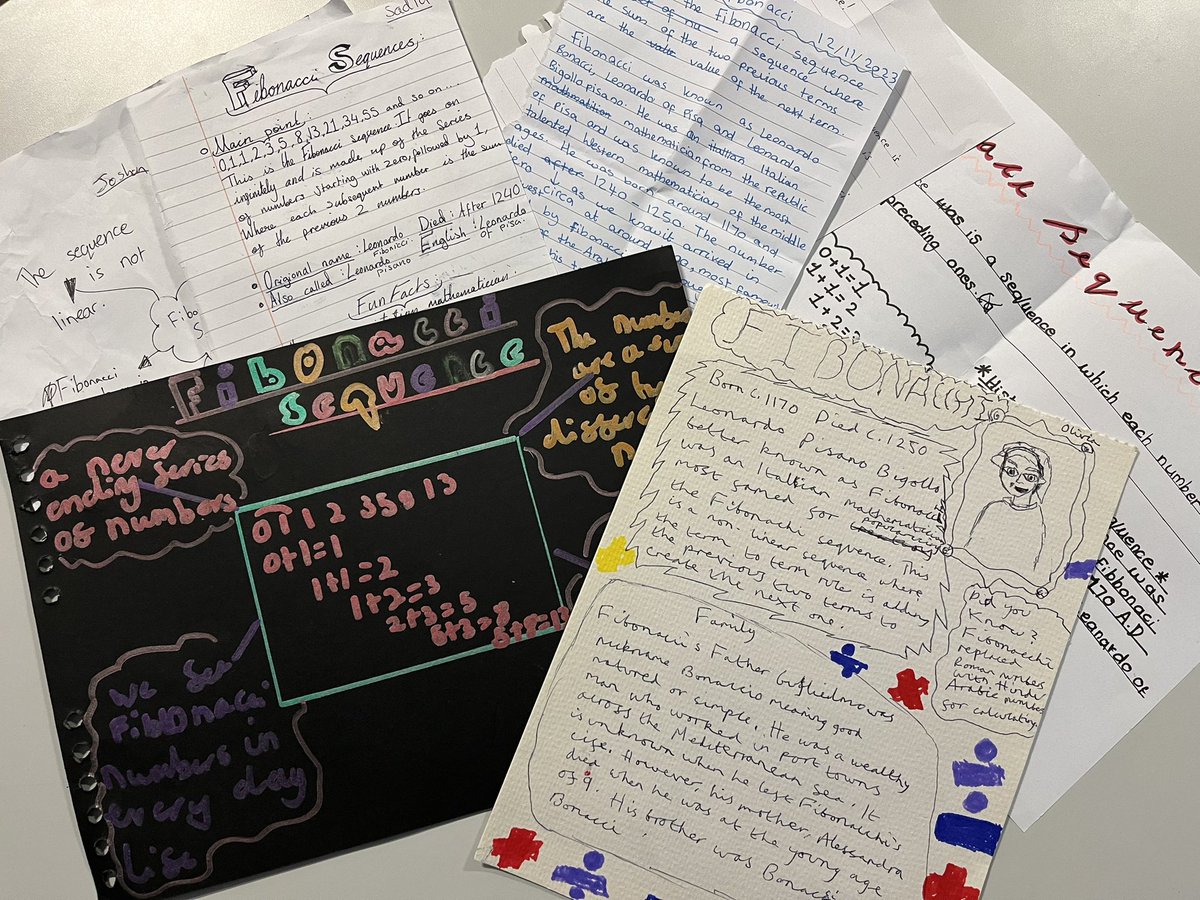 Joshua
The sequence
is not
linear.
Fibo
S
Fibonacci
Sadia
Fibonacci Sequences
Main point:
0,1,1,2,3,5,8,13,21,34,55 and so on....
This is the Fibonacci sequence It goes on
infinitely and is made up of the series
of numbers starting with zero, followed by 1,
Where each subsequent number is the sum
of the previous 2 numbers.
Origional name: Leonardo Fibonicci
Died: After 1240
Also called: Leonardo Pisano
English: Leonardo of Pisa.
Fun Facts:
mathematician
12/11/2023
the Fibonacci sequence
a sequence where
sum of the two previous terms
are the value of the next term.
Fibonacci was known as Leonardo
Bonacci, Leonardo of Pisa and Leonardo
Bigollo pisano. He was an Italian Italian
mathematition mathematician from the republic
of pisa and was known to be the most
talented Western mathematician of the middle
ages. He was born around 1170 and
died after 1240 - 1250. The number
zero as we know it arrived in
circa at around
by fibonacci
acci sequence
was is a sequence in which each number
preceding ones.
0+1=1
1+1=2
1+2=3
sequence *
was
Fibbonaci
1170 A.D
eanardo of
Fibonacci
SeQUence
a never
ending series
of numbers
The numbers
are a
of
0 1 1 2 3 5 8 13
0+1=1
1+1=2
1+2=3
2+3=5
5+3=8
5+8=13
we see
FiBONacci
numbers in
every day
Life
FIBONACCI
Olivia
Born c.1170 Died c.1250
Leonardo Pisano Bigollo
better known as Fibonacci
was an Italian mathematician
most famed for popularising
the Fibonacchi sequence. This
is a non-linear sequence where
the term to term rule is adding
the previous two terms to
create the next one.
Did you
Know?
Fibonacchi
replaced
Roman numbers
with Hindu
Arabic numbers
for calculating.
Family
Fibonacci's Father Guglielmo was
nickname Bonaccio meaning good
natured or simple. He was a wealthy
man who worked in port towns
across the Mediterranean Sea. It
is unknown when he left Fibonacchi's
life. However, his mother, Alessandra
died when he was at the young age
of 9. His brother was Bonacci
Bonacci.